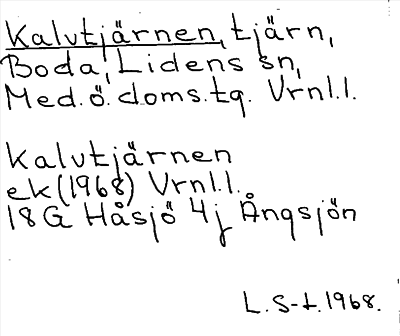 Kalvtjärnen, tjärn,
Boda, Lidens sn,
Med. ö. doms. tg. Vrnl.l.
Kalvtjärnen
ek (1968) Vrnl.l.
18G Håsjö 4j Ångsjön
L. S-t. 1968.